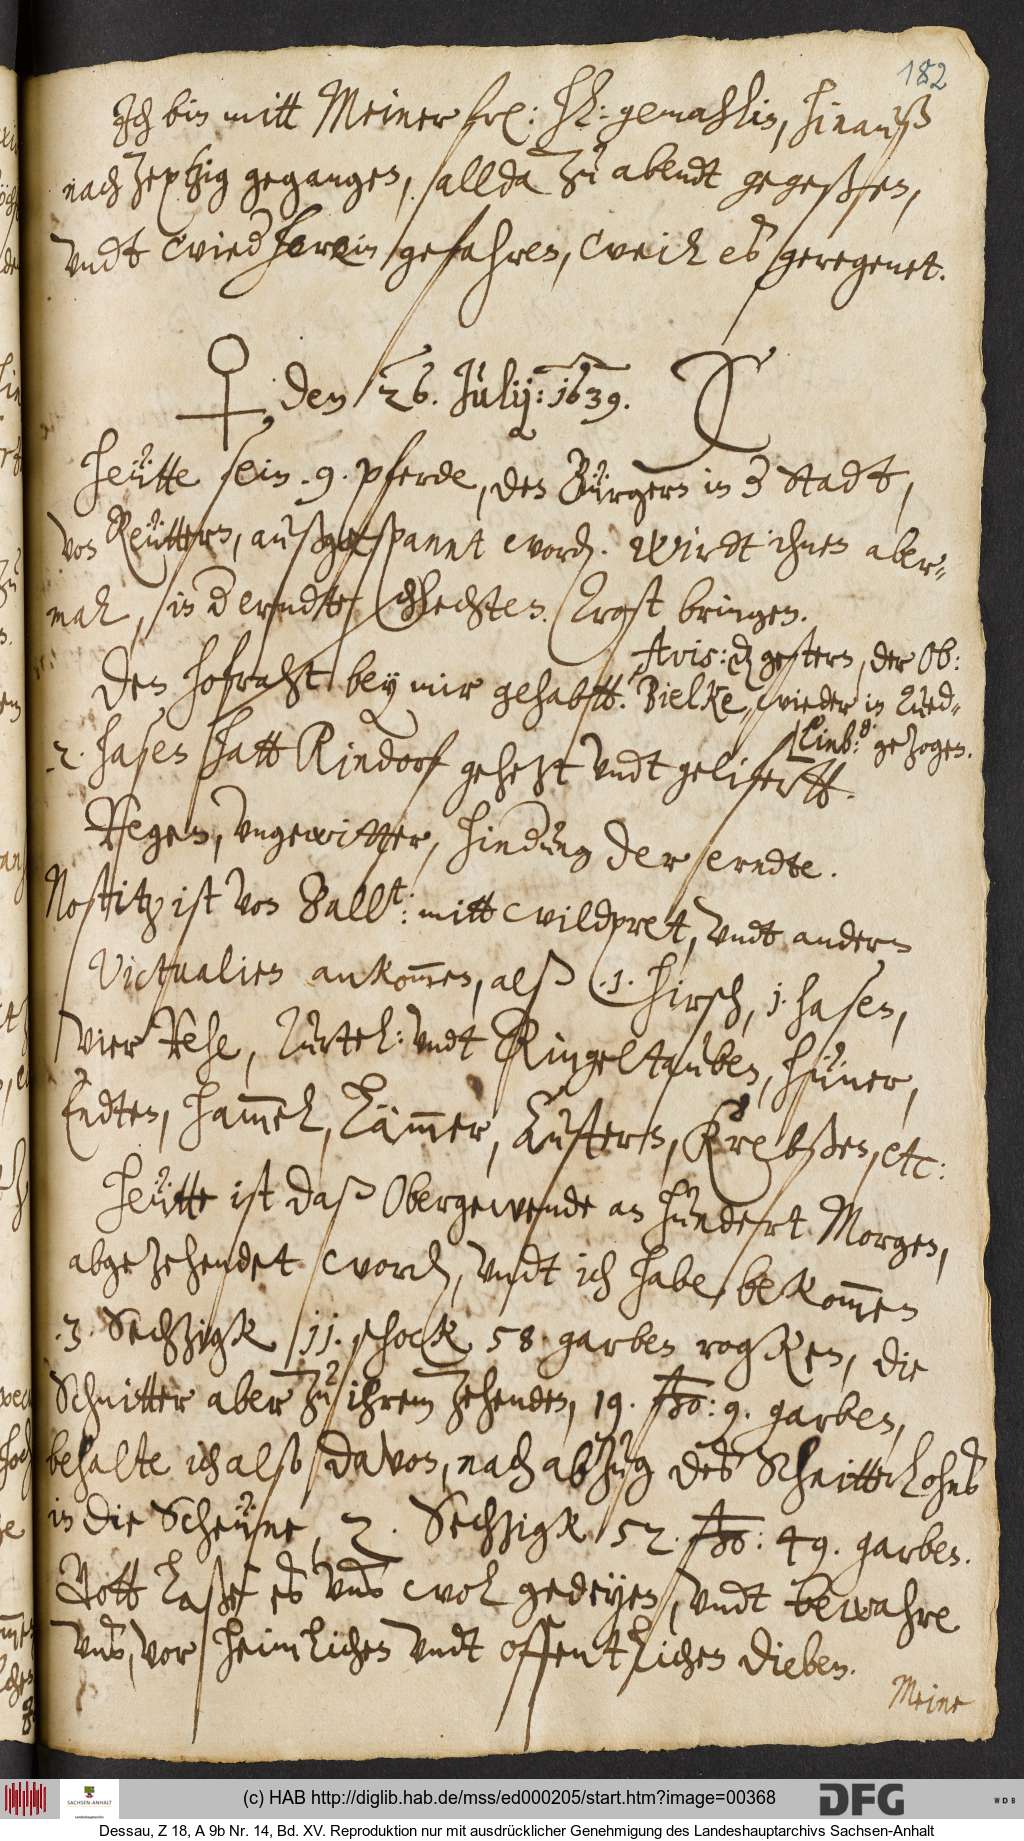 182
Ich bin mitt Meiner frl: h: gemahlin, hinauß
nach Zeptzig gegangen, allda zu abendt gegeßen,
undt wied herein gefahren, weil es geregenet.
♀ den 26. July: 1639. ☾
Heütte sein .9. pferde, den Bürgern in d Stadt,
von Reüttern, außgespannt word. Wirdt ihnen aber-
mal, in d erndte, schlechten trost bringen.
Den hofraht bey mir gehabtt. Avis: dz gestern, der Ob:
Bielke, wieder in Qued-
linb: gezogen.
.2. hasen hatt Rindorf gehezt undt geliefertt.
Regen, ungewitter, hindern der erndte.
Nostitz ist von Ballt: mitt wildpret, undt andern
Victualien ankom̅en, alß .1. hirsch, 1. hasen,
vier Rehe, Turtel: undt Ringeltauben, hüner,
Endten, ham̅el, Läm̅er, Austern, Krebßen, etc:
Heütte ist daß Obergewende an hundert Morgen,
abgezehendet word, undt ich habe bekom̅en
.3. Sechzigk 11. schock 58 garben rogken, die
Schnitter aber zu ihrem zehenden, 19. ßo: 9. garben,
behalte ich also davon, nach abzug des Schnitterlohns
in die Scheüne, 2. Sechzigk 52. ßo: 49. garben.
Gott laße es uns wol gedeyen, undt bewahre
uns, vor heimlichen undt offentlichen dieben.
Meine
(c) HAB http://diglib.hab.de/mss/ed000205/start.htm?image=00368
SACHSEN-ANHALT
DFG
WDB
Dessau, Z 18, A 9b Nr. 14, Bd. XV. Reproduktion nur mit ausdrücklicher Genehmigung des Landeshauptarchivs Sachsen-Anhalt